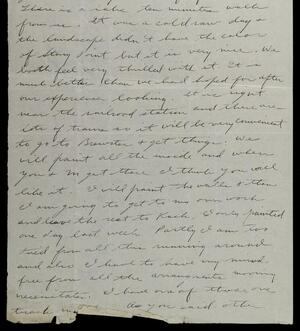 There is a lake ten minutes walk
from us. It was a cold raw day &
the landscape didn't have the color
of Stony Point but it is very nice. We
both feel very thrilled with it. It is
much better than we had hoped for after
our experience looking. It is right
near the railroad station and there are
lots of trains so it will be very convenient
to go to Brewster & get things. We
will paint all the inside and when
you & M get there I think you will
like it. I will paint the walls & then
I am going to get to my own work
and leave the rest to Kash. I only painted
one day last week. Partly I am too
tired from all this running around
and also I have to have my mind
free from all the arrangements moving
necessitates. I have one of those one
track As you said other